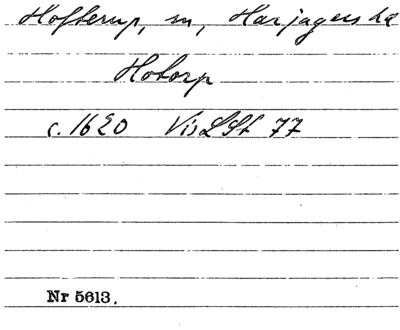 Hofterup, sn, Harjagers hd
Hotorp
c. 1620 VisLSt 77
Nr 5613.